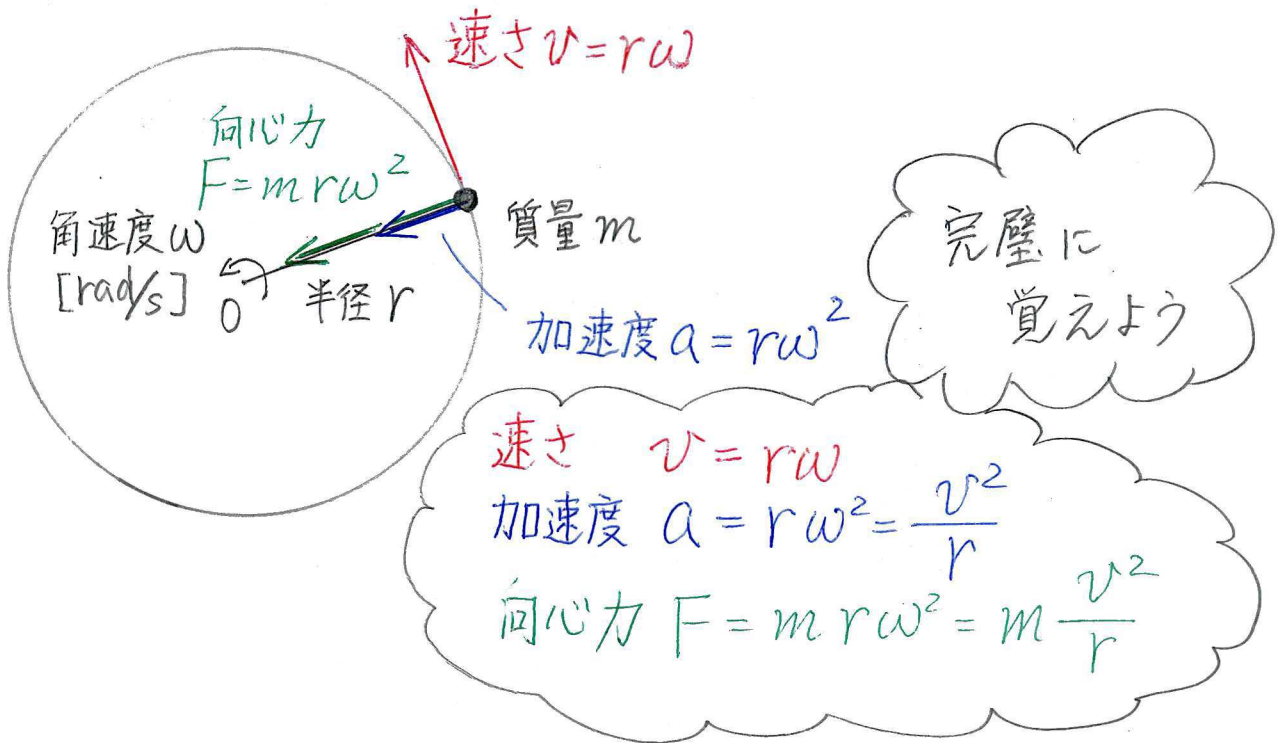 速さ v = rω
向心力
F = mrω²
角速度 ω
[rad/s]
O
半径 r
質量 m
加速度 a = rω²
完璧に
覚えよう
速さ v = rω
加速度 a = rω² = v²/r
向心力 F = mrω² = m v²/r